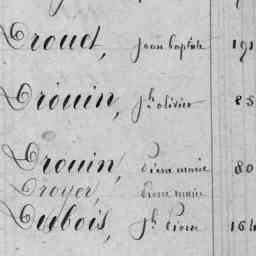 Droud, Jean baptiste 191
Drouin, Jh olivier 85
Drouin, Pierre marie 80
Droyer, Pierre marie
Dubois, Jh Pierre 164